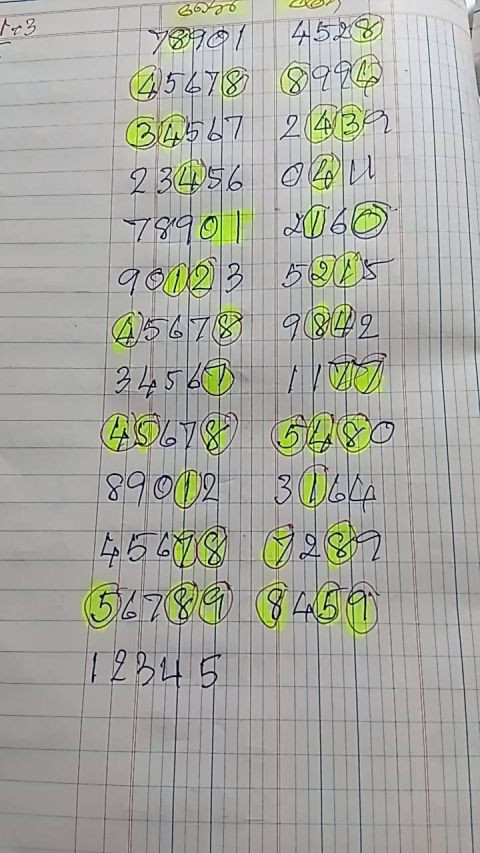 1+3
78901 4528
45678 8994
34567 2439
23456 0411
78901 2160
90123 5215
45678 9842
34567 1177
45678 5480
89012 3164
45678 7289
56789 8459
12345